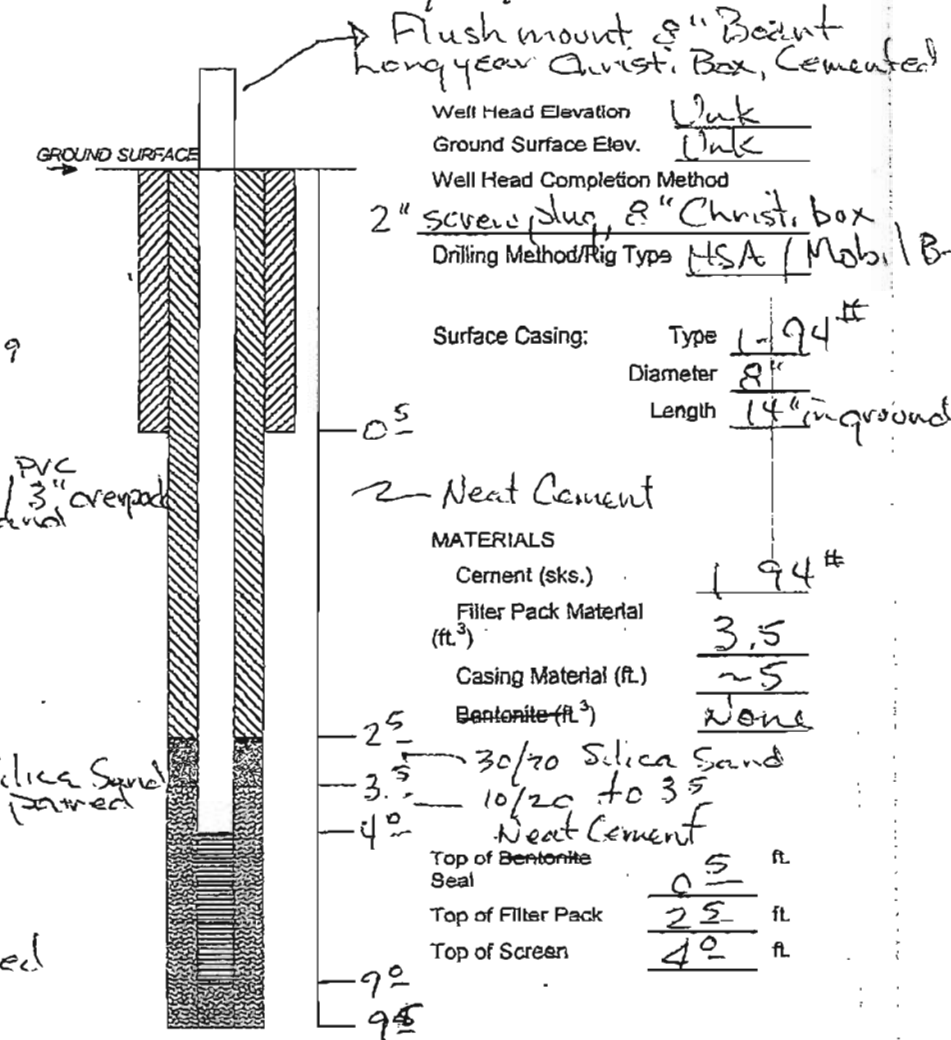 Flush mount 8" Boart
Longyear Christi Box, Cemented
Well Head Elevation Unk
GROUND SURFACE
Ground Surface Elev. Unk
Well Head Completion Method
2" screw plug, 8" Christi box
Drilling Method/Rig Type HSA / Mobil B-
Surface Casing: Type 1-94#
9
Diameter 8"
Length 14" in ground
0 5
PVC
/ 3"
Neat Cement
MATERIALS
Cement (sks.) 1 94#
Filter Pack Material
(ft.³) 3.5
Casing Material (ft.) ~5
Bentonite (ft.³) None
2 5
30/70 Silica Sand
ilica Sand
3. 5
10/20 to 35
4 0
Neat Cement
Top of Bentonite
Seal 0 5 ft.
Top of Filter Pack 2 5 ft.
Top of Screen 4 0 ft.
ed
9 0
9 5